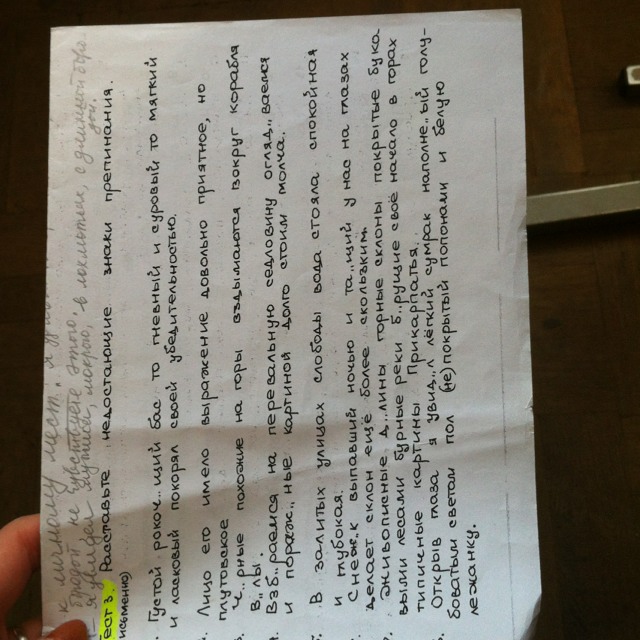 к личному мест.
бравой, не чувствуете этого.
я увидел мужчину, мокрого, в лохмотьях, с длинной боро
дой.
ест 3. Расставьте недостающие знаки препинания.
исьменно)
Густой рокоч..щий бас то гневный и суровый то мягкий
и ласковый покорял своей убедительностью.
Лицо его имело выражение довольно приятное, но
плутовское
Ч..рные похожие на горы вздымаются вокруг корабля
в..лы.
Взб..раемся на перевальную седловину огляд..ваемся
и пораж..ные картиной долго стоим молча.
В залитых улицах слободы вода стояла спокойная
и глубокая.
Снеж..к выпавший ночью и та..щий у нас на глазах
делает склон ещё более скользким.
Живописные д..лины горные склоны покрытые бука
выми лесами бурные реки б..рущие своё начало в горах
типичные картины Прикарпатья.
Открыв глаза я увид..л лёгкий сумрак наполне..ый голу-
боватым светом пол (не)покрытый попонами и белую
лежанку.